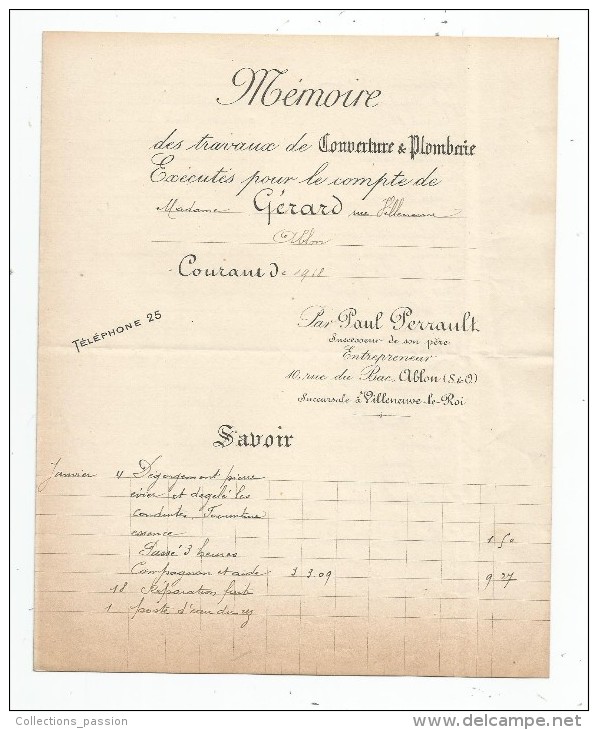 Mémoire
des travaux de Couverture & Plomberie
Exécutés pour le compte de
Madame Gérard rue Villeneuve
Ablon
Courant de 1918
TÉLÉPHONE 25
Par Paul Perrault
Successeur de son père
Entrepreneur
10, rue du Bac, Ablon (S&O)
Succursale à Villeneuve-le-Roi
Savoir
Janvier 4 Dégorgement pierre
évier et dégelé les
conduites, Fourniture
essence 1 50
Passé 3 heures
Compagnon et aide 3 3.09 9 27
18 Réparation fuite
1 poste d'eau du
Collections_passion
www.delcampe.net